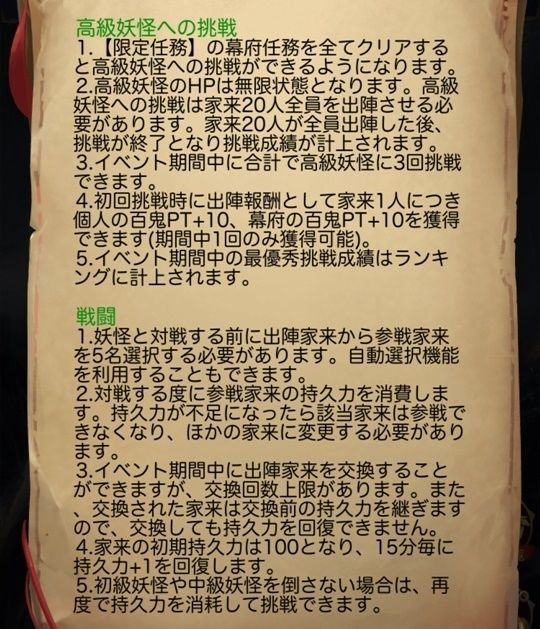 高級妖怪への挑戦
1.【限定任務】の幕府任務を全てクリアする
と高級妖怪への挑戦ができるようになります。
2.高級妖怪のHPは無限状態となります。高級
妖怪への挑戦は家来20人全員を出陣させる必
要があります。家来20人が全員出陣した後、
挑戦が終了となり挑戦成績が計上されます。
3.イベント期間中に合計で高級妖怪に3回挑戦
できます。
4.初回挑戦時に出陣報酬として家来1人につき
個人の百鬼PT+10、幕府の百鬼PT+10を獲得
できます(期間中1回のみ獲得可能)。
5.イベント期間中の最優秀挑戦成績はランキ
ングに計上されます。
戦闘
1.妖怪と対戦する前に出陣家来から参戦家来
を5名選択する必要があります。自動選択機能
を利用することもできます。
2.対戦する度に参戦家来の持久力を消費しま
す。持久力が不足になったら該当家来は参戦で
きなくなり、ほかの家来に変更する必要があり
ます。
3.イベント期間中に出陣家来を交換すること
ができますが、交換回数上限があります。また
、交換された家来は交換前の持久力を継ぎます
ので、交換しても持久力を回復できません。
4.家来の初期持久力は100となり、15分毎に
持久力+1を回復します。
5.初級妖怪や中級妖怪を倒さない場合は、再
度で持久力を消耗して挑戦できます。